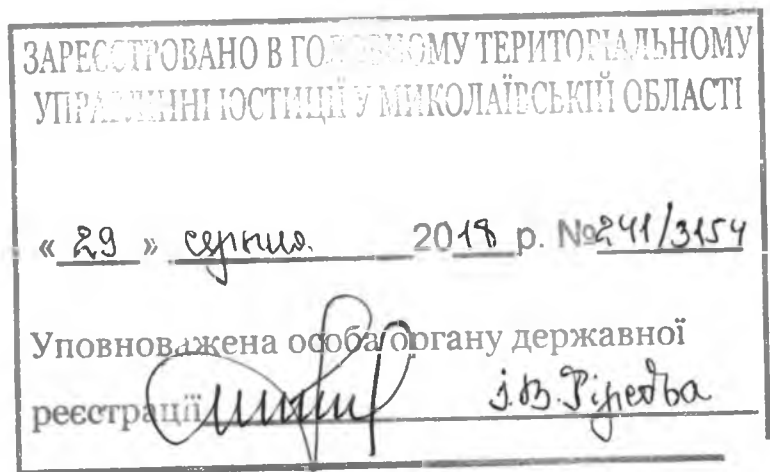 ЗАРЕЄСТРОВАНО В ГОЛОВНОМУ ТЕРИТОРІАЛЬНОМУ
УПРАВЛІННІ ЮСТИЦІЇ У МИКОЛАЇВСЬКІЙ ОБЛАСТІ
« 29 » серпня 2018 р. №241/3154
Уповноважена особа органу державної
реєстрації І.В.